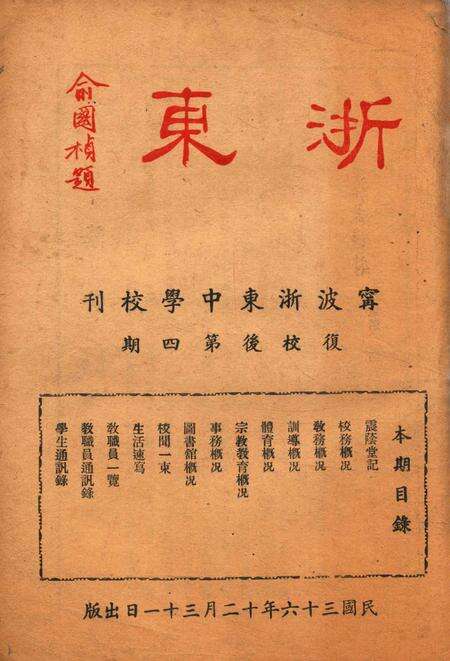 浙東
俞國楨題
甯波浙東中學校刊
復校後第四期
本期目錄
震蔭堂記
校務概况
敎務概况
訓導概况
體育概况
宗敎敎育概况
事務概况
圖書館概况
校聞一束
生活速寫
敎職員一覽
敎職員通訊錄
學生通訊錄
民國三十六年十二月三十一日出版